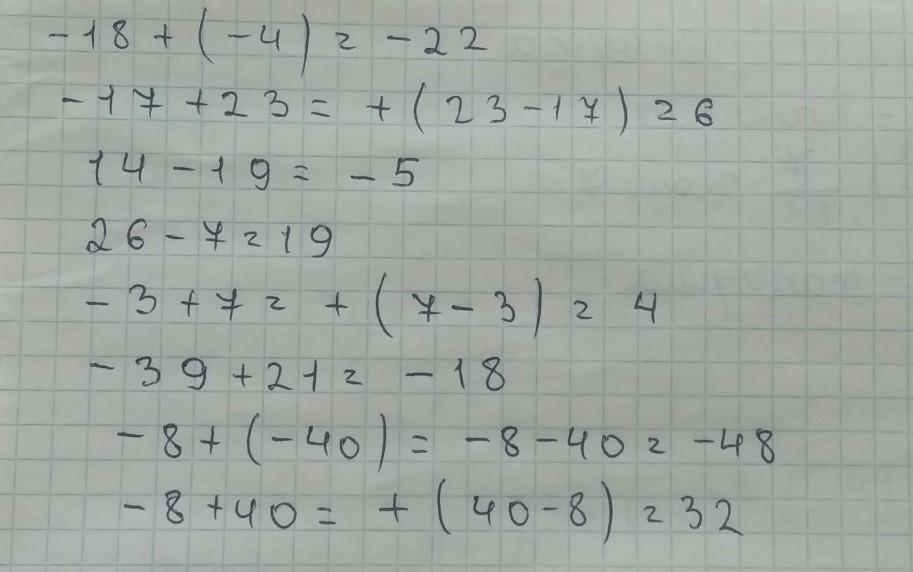 -18 + (-4) = -22
-17 + 23 = +(23-17) = 6
14 - 19 = -5
26 - 7 = 19
-3 + 7 = +(7-3) = 4
-39 + 21 = -18
-8 + (-40) = -8 - 40 = -48
-8 + 40 = +(40-8) = 32